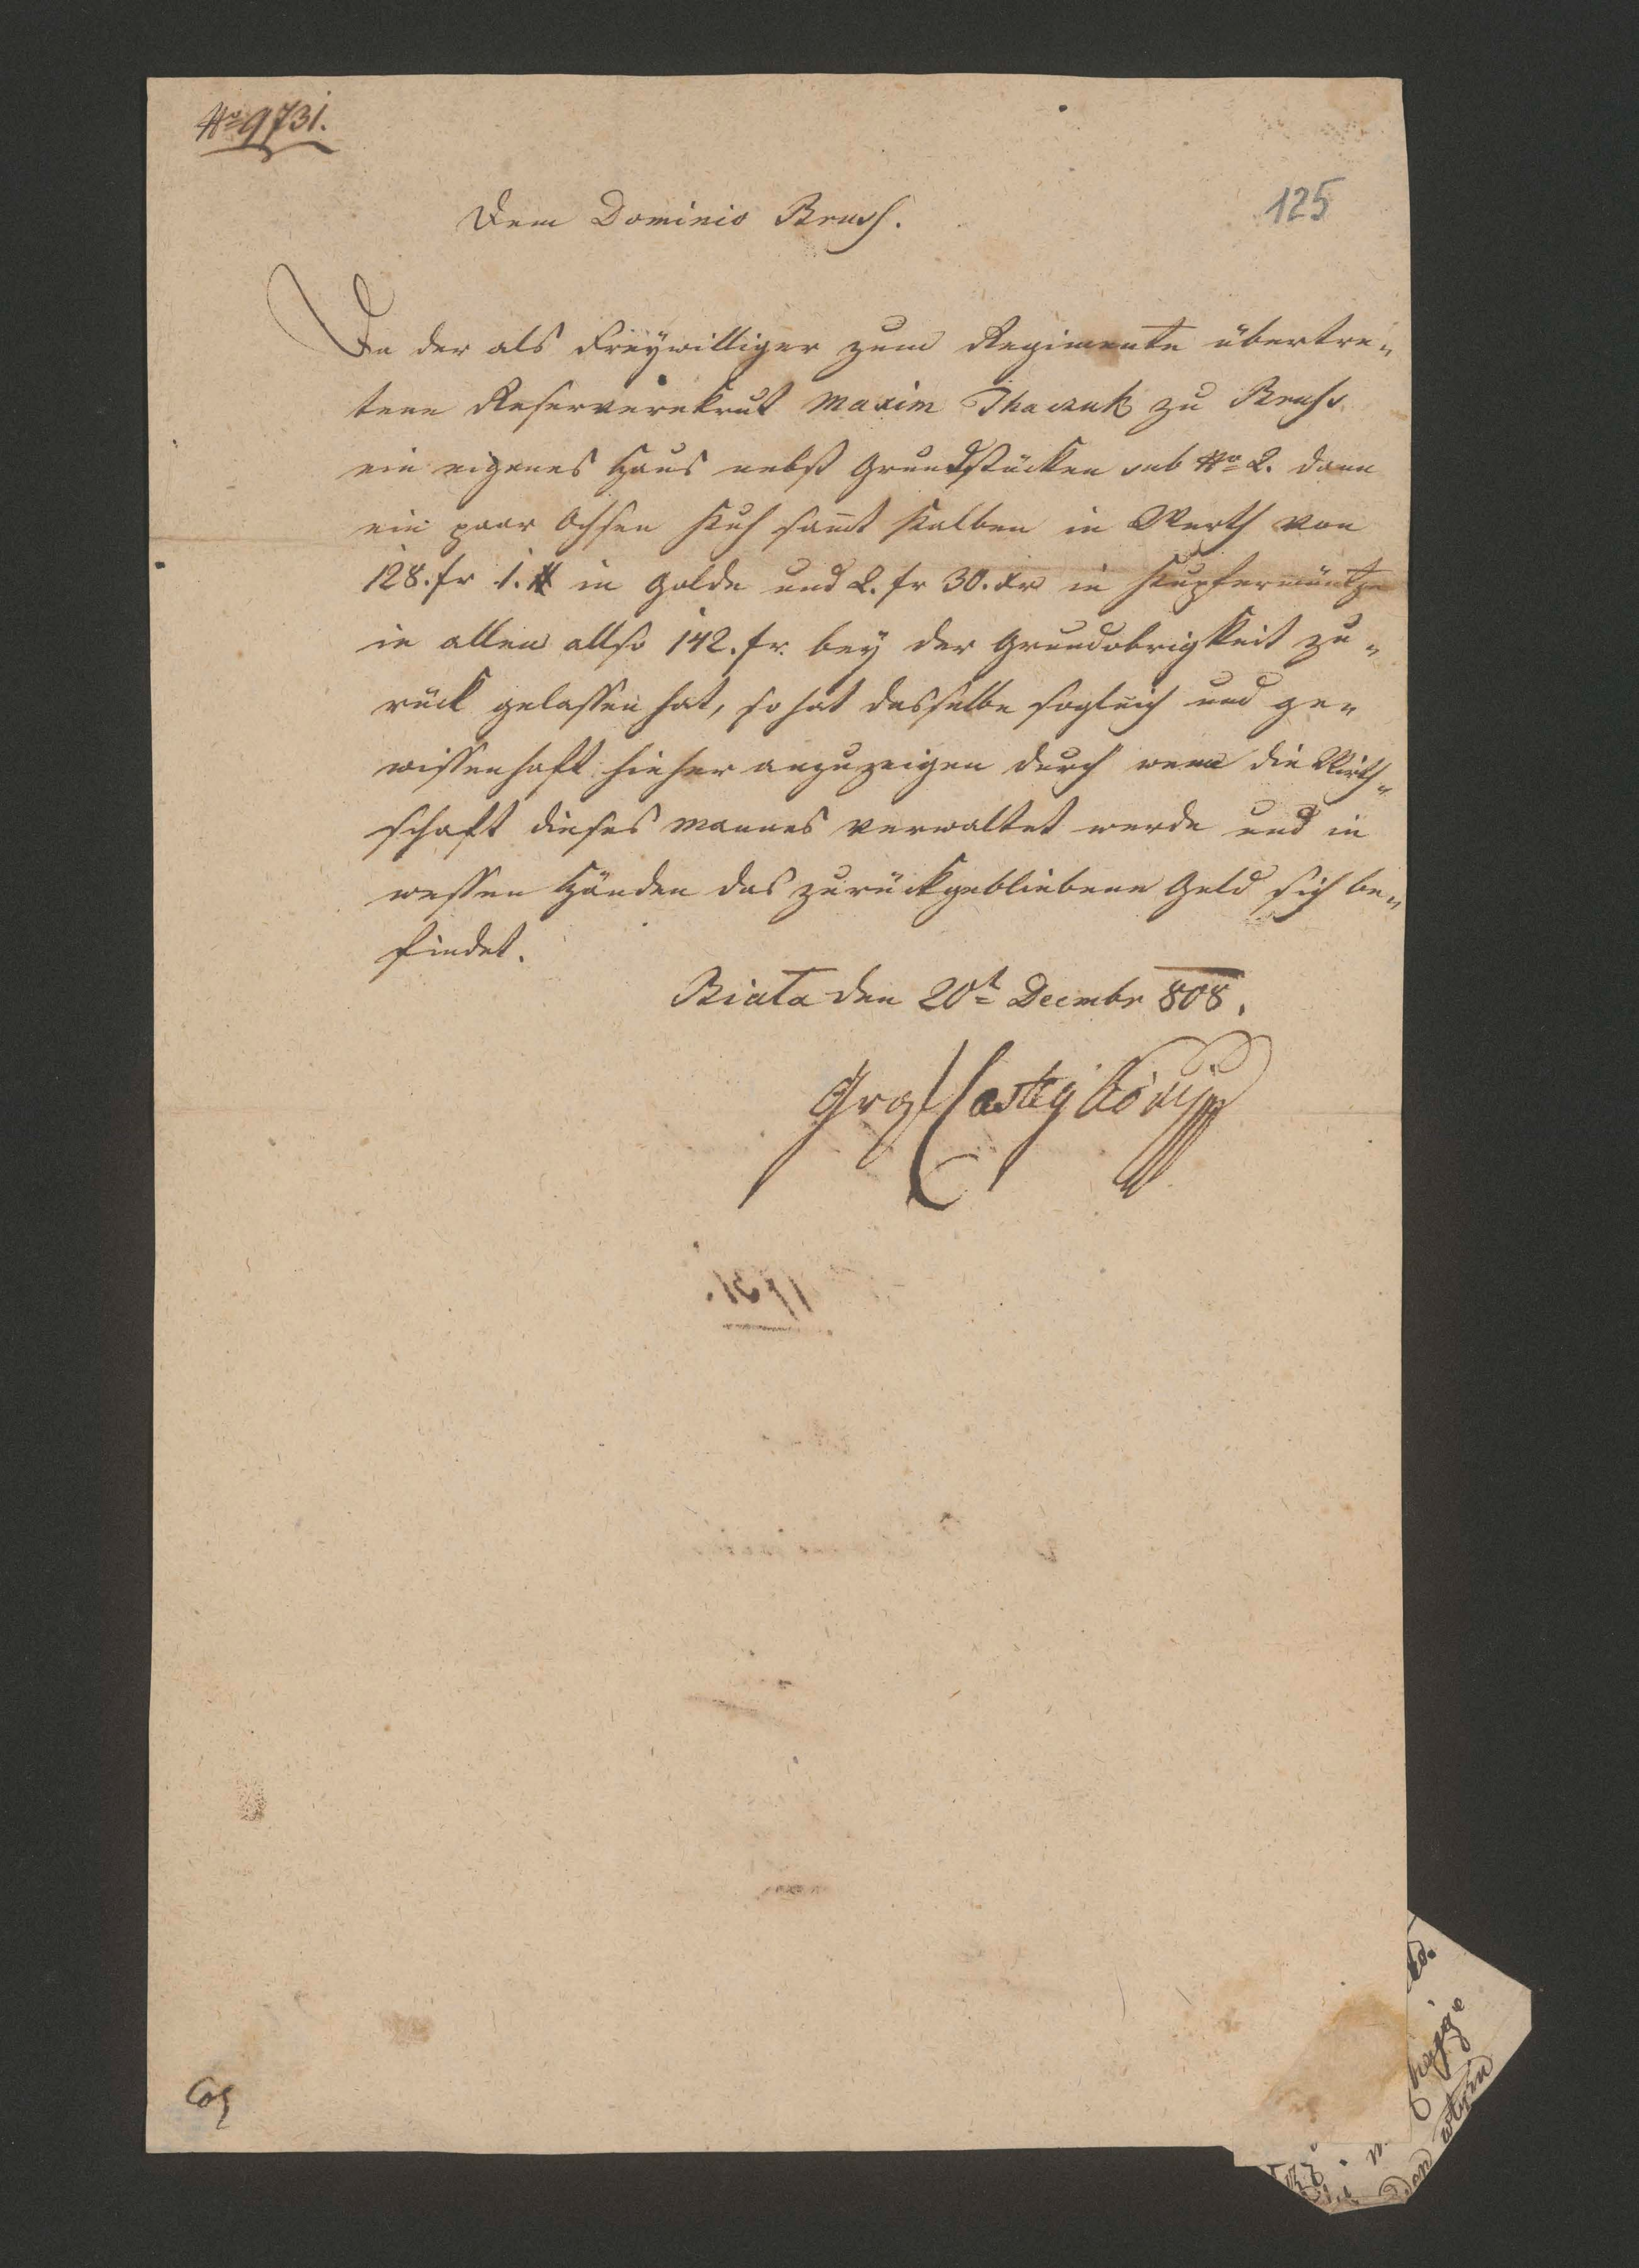 No 9731.
125
Dem Dominio Bruss.
Da der als Freywilliger zum Regimente übertre„
tene Reserverekrut Maxim Thaczuk zu Bruss
ein eigenes Haus nebst Grundstücken sub No 2. dann
ein paar Ochsen Kuh sam̄t Kalben in Werth von
128. fr 1. # in Golde und 2. fr 30. xr in Kupfermüntze
in allem allso 142. fr. bey der Grundobrigkeit zu„
rück gelassen hat, so hat dasselbe sogleich und ge„
wissenhaft hieher anzuzeigen durch wem die Wirth„
schaft dieses Mannes verwaltet werde und in
wessen Händen das zurückgebliebene Geld sich be„
findet.
Biała den 20t Decmbr 808.
Graf